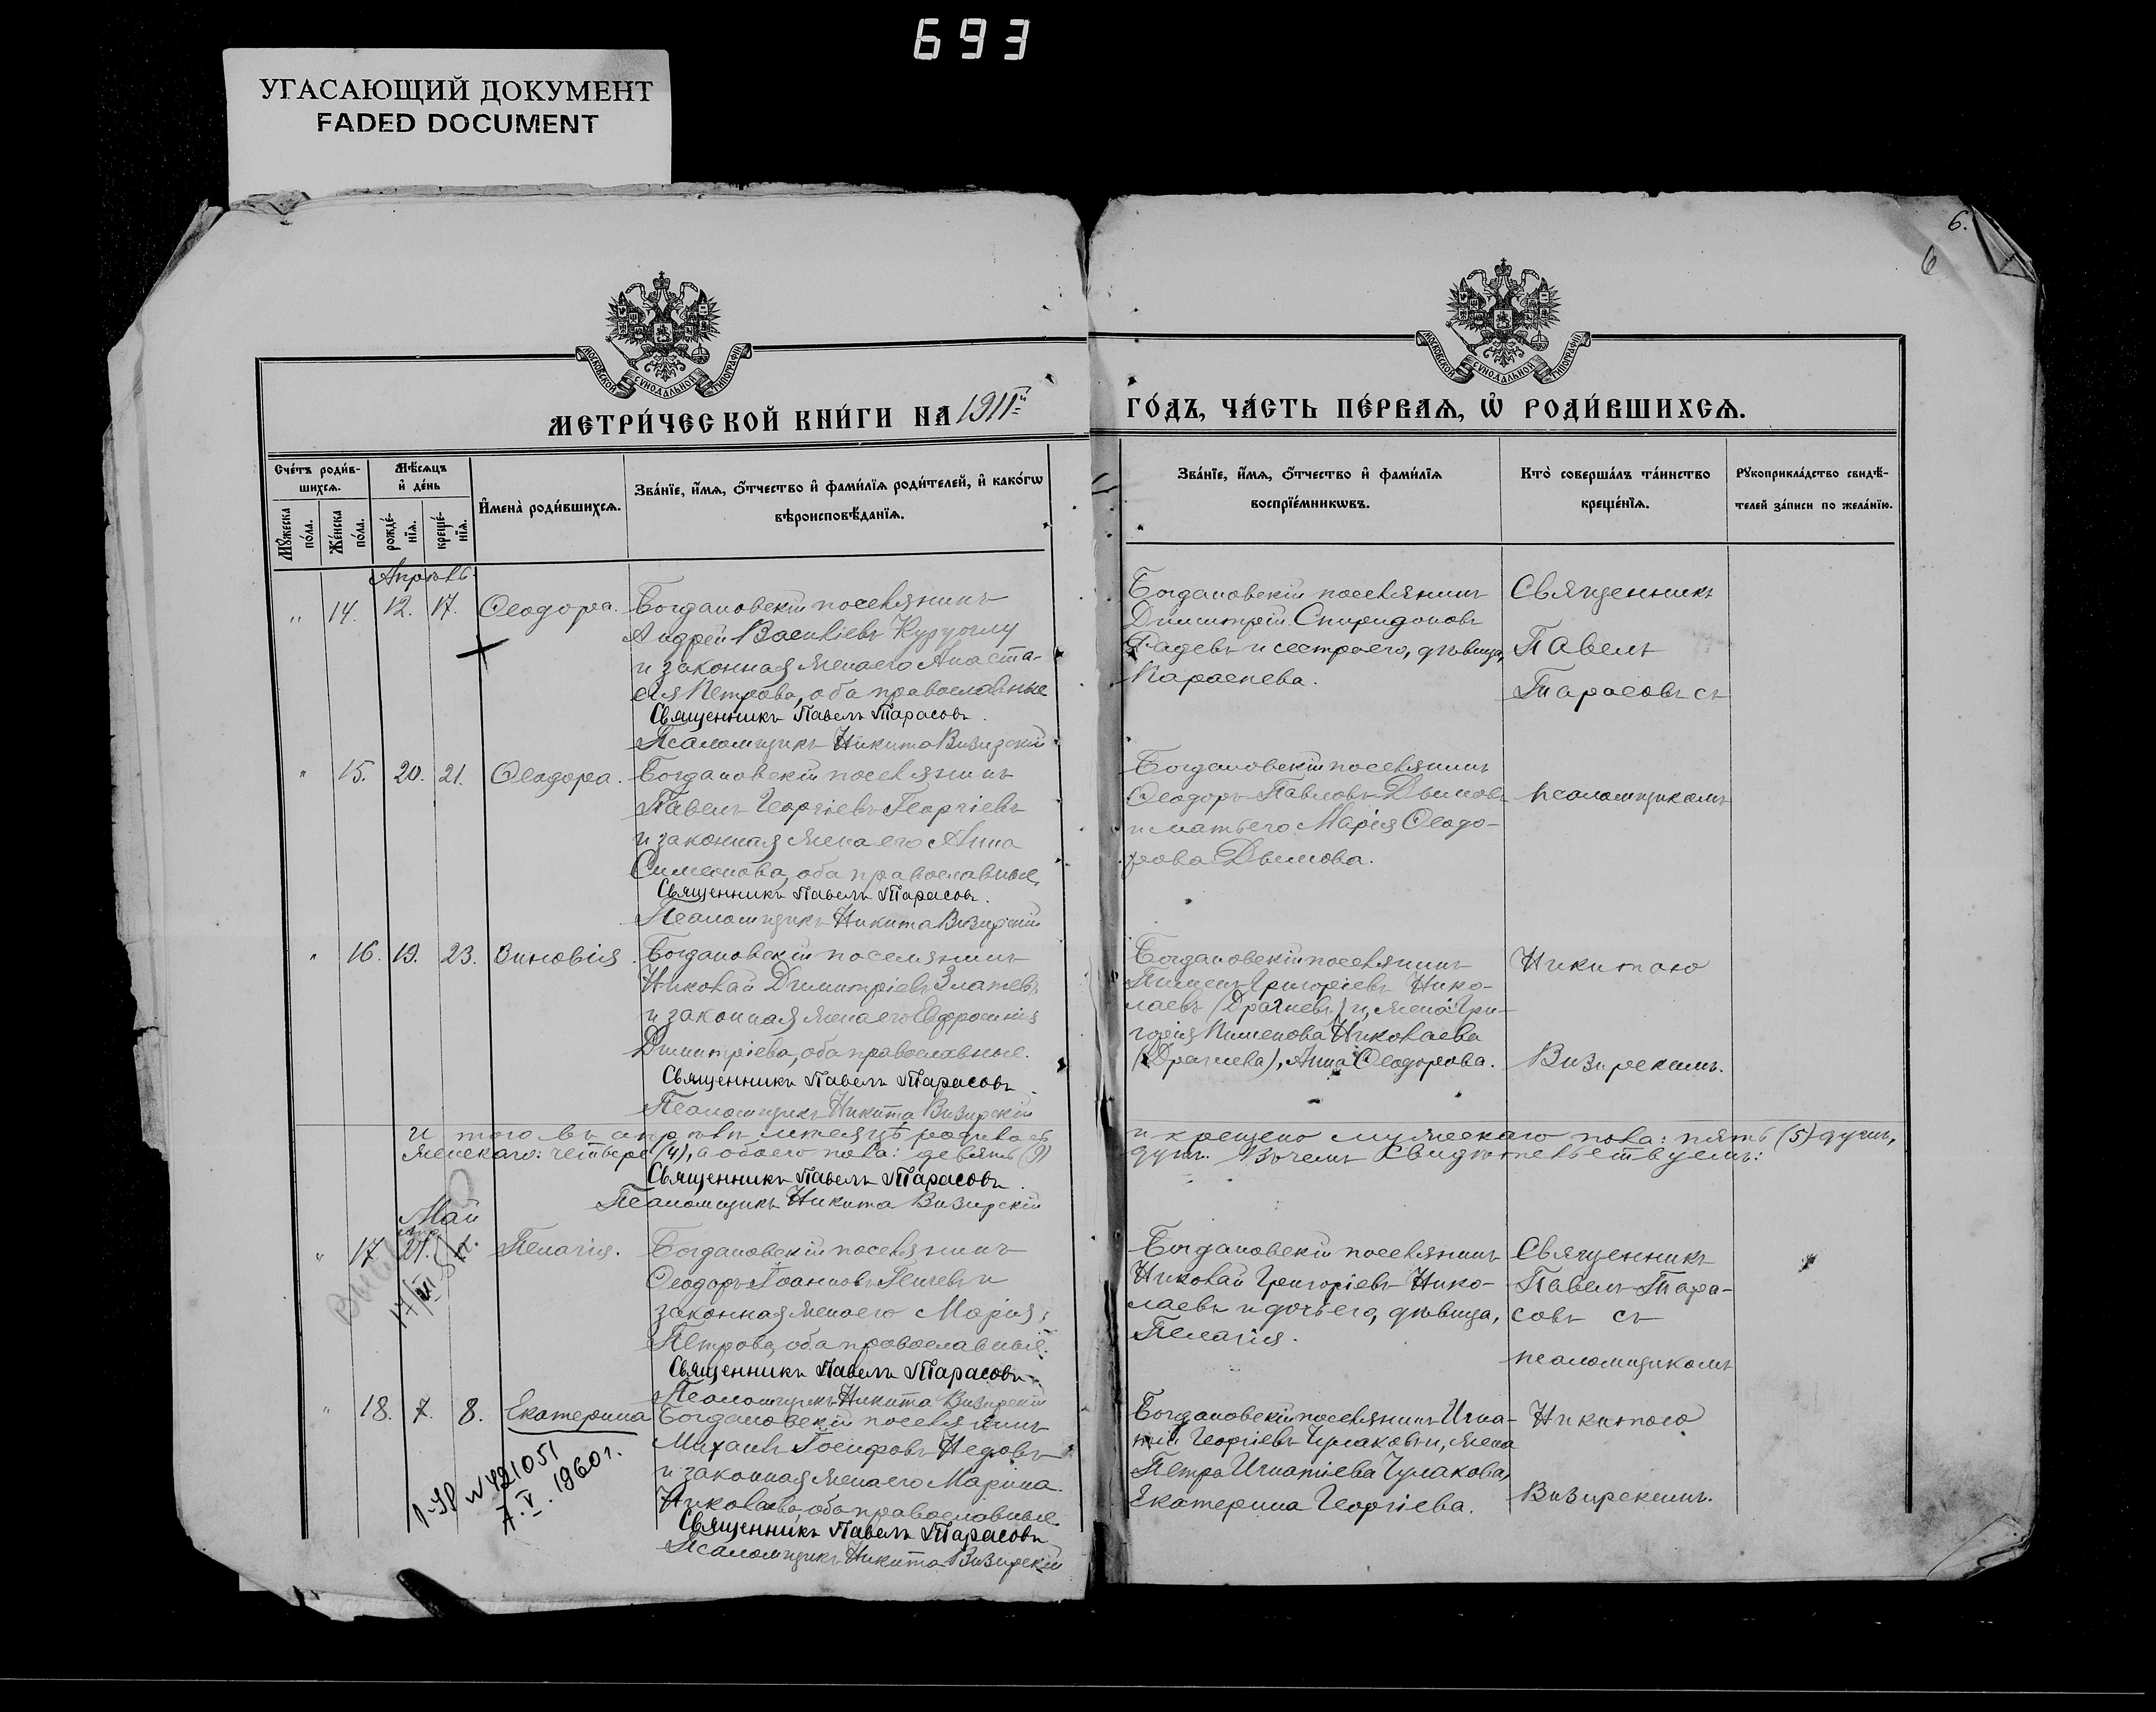 693
УГАСАЮЩИЙ ДОКУМЕНТ
FADED DOCUMENT
6.
6
МОСКОВСКОЙ СѴНОДАЛЬНОЙ ТИПОГРАФІИ
МОСКОВСКОЙ СѴНОДАЛЬНОЙ ТИПОГРАФІИ
МЕТРИ́ЧЕСКОЙ КНИ́ГИ НА 1911й
ГО́ДЪ, ЧА́СТЬ ПЕ́РВАѦ, Ѡ҆ РОДИ́ВШИХСѦ.
Сче́тъ роди́в-
шихсѧ.
Мꙋ́жеска
по́ла.
Же́нска
по́ла.
Мѣ́сѧцъ
и҆ де́нь
рожде́-
нїѧ.
креще́-
нїѧ.
И҆мена̀ роди́вшихсѧ.
Зва́нїе, и҆́мѧ, ѻ҆́тчество и҆ фами́лїѧ роди́телей, и҆ како́гѡ
вѣроисповѣ́данїѧ.
Зва́нїе, и҆́мѧ, ѻ҆́тчество и҆ фами́лїѧ
воспрїе́мникѡвъ.
Кто̀ соверша́лъ та́инство
креще́нїѧ.
Рꙋкоприкла́дство свидѣ́-
телей за́писи по жела́нїю.
Апрѣль.
" 14. 12. 17. Ѳеодора.
Богдановскій поселянинъ
Андрей Васильевъ Куруоглу
и законная жена его Анаста-
сія Петрова, оба православные
Священникъ Павелъ Тарасовъ.
Псаломщикъ Никита Визирскій
Богдановскій поселянинъ
Димитрій Спиридоновъ
Радевъ и сестра его, дѣвица,
Параскева.
Священникъ
Павелъ
Тарасовъ съ
" 15. 20. 21. Ѳеодора.
Богдановскій поселянинъ
Павелъ Георгіевъ Георгіевъ
и законная жена его Анна
Симеонова, оба православные.
Священникъ Павелъ Тарасовъ.
Псаломщикъ Никита Визирскій
Богдановскій поселянинъ
Ѳеодоръ Павловъ Дымовъ
и мать его Марія Ѳеодо-
рова Дымова.
псаломщикомъ
" 16. 19. 23. Зиновія.
Богдановскій поселянинъ
Николай Димитріевъ Златевъ
и законная жена его Евфросинія
Димитріева, оба православные.
Священникъ Павелъ Тарасовъ.
Псаломщикъ Никита Визирскій
Богдановскій поселянинъ
Пименъ Григоріевъ Нико-
лаевъ (Драгневъ) и, жена Гри-
горія Пименова Николаева
(Драгнева), Анна Ѳеодорова.
Никитою
Визирскимъ.
И того въ апрѣлѣ мѣсяцѣ родилось и крещено мужескаго пола: пять (5) душъ,
женскаго: четыре (4), а обоего пола: девять (9) душъ. Въ чемъ свидѣтельствуемъ:
Священникъ Павелъ Тарасовъ.
Псаломщикъ Никита Визирскій
Май
" 17. 21. 1. Пелагія.
Богдановскій поселянинъ
Ѳеодоръ Іоанновъ Пенчевъ и
законная жена его Марія
Петрова, оба православные.
Священникъ Павелъ Тарасовъ.
Псаломщикъ Никита Визирскій
Богдановскій поселянинъ
Николай Григоріевъ Нико-
лаевъ и дочь его, дѣвица,
Пелагія.
Священникъ
Павелъ Тара-
совъ съ
псаломщикомъ
" 18. 7. 8. Екатерина
Богдановскій поселянинъ
Михаилъ Іосифовъ Недовъ
и законная жена его Марина
Николаева, оба православные.
Священникъ Павелъ Тарасовъ
Псаломщикъ Никита Визирскій
Богдановскій поселянинъ Игна-
тій Георгіевъ Чумаковъ и, жена
Петра Игнатіева Чумакова,
Екатерина Георгіева.
Никитою
Визирскимъ.
№ 421051
7.V.1960г.